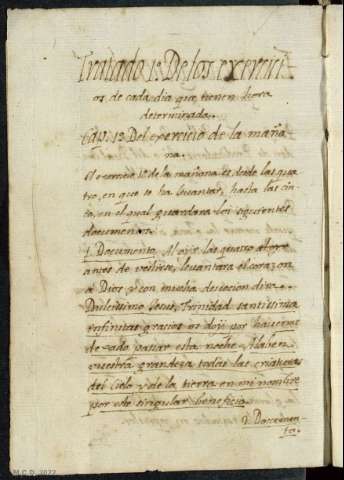 Tratado 1º De los exerçiçi-
os de cada dia que tienen hora
determinada.
Cap. 1º Del exerçiçio de la maña
na.
El exerçiçio 1º de la mañana es desde las qua
tro, en que se ha levantar, hasta las cin
co, en el qual guardara los siguientes
documentos.
1. Documento. Al oyr las quatro
antes de vestirse, levantara el coraçon
a Dios y con mucha devocion dira.
Dulcissimo Jesus, Trinidad santissima
infinitas gracias os doy por haverme
dexado passar esta noche. Alaben
vuestra grandeza todas las criaturas
del Cielo y de la tierra en mi nombre
por este singular beneficio.
2. Documen
to.
M.C.D. 2022